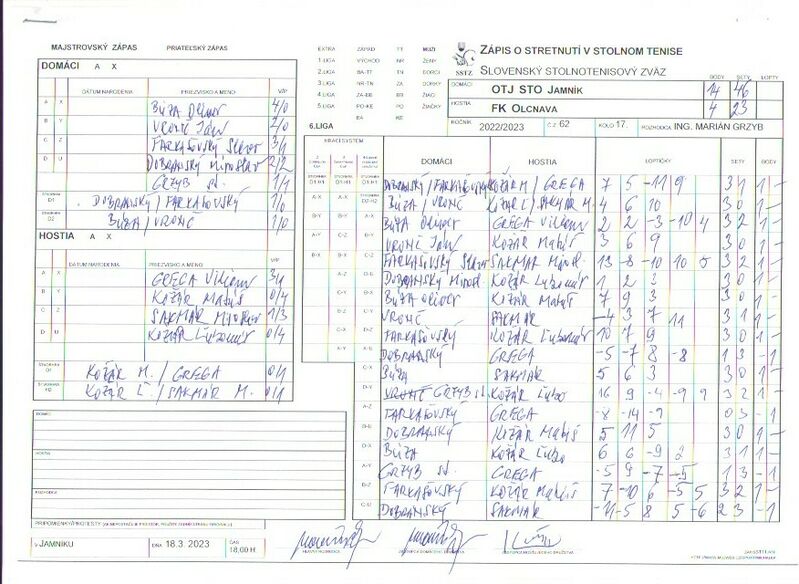 MAJSTROVSKÝ ZÁPAS PRIATEĽSKÝ ZÁPAS
DOMÁCI A X
DÁTUM NARODENIA PRIEZVISKO A MENO V/P
A X BÚZA Oliver 4/0
B Y VRONČ Ján 2/0
C Z FARKAŠOVSKÝ Slavor 3/1
D U DOBRANSKÝ Miroslav 2/2
GRZYB st. 1/1
ŠTVORHRA D1 DOBRANSKÝ / FARKAŠOVSKÝ 1/0
ŠTVORHRA D2 BÚZA / VRONČ 1/0
HOSTIA A X
DÁTUM NARODENIA PRIEZVISKO A MENO V/P
A X GREGA Viliam 3/1
B Y KOŽÁR Matúš 0/4
C Z SAKMÁR Miroslav 1/3
D U KOŽÁR Ľubomír 0/4
KOŽÁR M. / GREGA 0/1
KOŽÁR Ľ. / SAKMÁR M. 0/1
DOMÁCI
HOSTIA
ROZHODCA
PRIPOMIENKY/PROTESTY
V JAMNÍKU DŇA 18.3. 2023 ČAS 18,00 H
EXTRA ZÁPAD TT MUŽI
1.LIGA VÝCHOD NR ŽENY
2.LIGA BA-TT TN DORCI
3.LIGA NR-TN ZA DORKY
4.LIGA ZA-BB BB ŽIACI
5.LIGA PO-KE PO ŽIAČKY
BA KE
6.LIGA
SSTZ
ZÁPIS O STRETNUTÍ V STOLNOM TENISE
SLOVENSKÝ STOLNOTENISOVÝ ZVÄZ
BODY SETY LOPTY
DOMÁCI OTJ STO JAMNÍK 14 46
HOSTIA FK OLCNAVA 4 23
ROČNÍK 2022/2023 Č.Z 62 KOLO 17. ROZHODCA ING. MARIÁN GRZYB
HRACÍ SYSTÉM DOMÁCI HOSTIA LOPTIČKY SETY BODY
DOBRANSKÝ / FARKAŠOVSKÝ KOŽÁR M / GREGA 7 5 -11 9 3 1 1 -
BÚZA / VRONČ KOŽÁR Ľ / SAKMÁR M. 4 6 10 3 0 1 -
BÚZA Oliver GREGA Viliam 2 2 -3 -10 4 3 2 1 -
VRONČ Ján KOŽÁR Matúš 3 6 9 3 0 1 -
FARKAŠOVSKÝ Slavor SAKMÁR Mirosl. 13 -8 -10 10 5 3 2 1 -
DOBRANSKÝ Mirosl. KOŽÁR Ľubomír 1 2 3 3 0 1 -
BÚZA Oliver KOŽÁR Matúš 7 9 3 3 0 1 -
VRONČ SAKMÁR -4 3 7 11 3 1 1 -
FARKAŠOVSKÝ KOŽÁR Ľubomír 10 7 9 3 0 1 -
DOBRANSKÝ GREGA -5 -7 8 -8 1 3 - 1
BÚZA SAKMÁR 5 6 3 3 0 1 -
VRONČ GRZYB st. KOŽÁR Ľubo 16 9 -4 -9 9 3 2 1 -
FARKAŠOVSKÝ GREGA -8 -14 -9 0 3 - 1
DOBRANSKÝ KOŽÁR Matúš 5 11 5 3 0 1 -
BÚZA KOŽÁR Ľubo 6 6 -9 2 3 1 1 -
GRZYB st. GREGA -5 9 -7 -5 1 3 - 1
FARKAŠOVSKÝ KOŽÁR Matúš 7 -10 6 -5 5 3 2 1 -
DOBRANSKÝ SAKMÁR -11 -5 8 5 -6 2 3 - 1